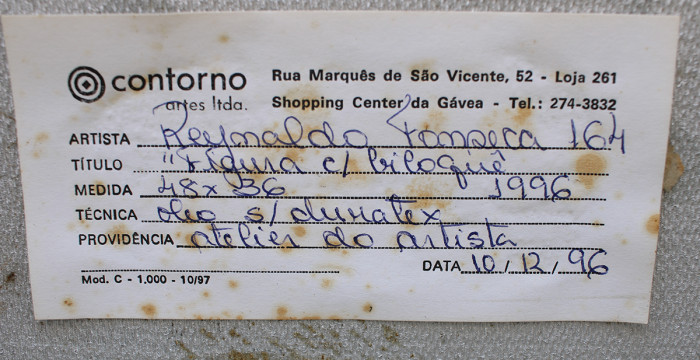 contorno Rua Marquês de São Vicente, 52 - Loja 261
artes ltda. Shopping Center da Gávea - Tel.: 274-3832
ARTISTA Reynaldo Fonseca 164
TÍTULO "Figura c/ biloquê
MEDIDA 48x36 1996
TÉCNICA óleo s/ duratex
PROVIDÊNCIA atelier do artista
DATA 10/12/96
Mod. C - 1.000 - 10/97